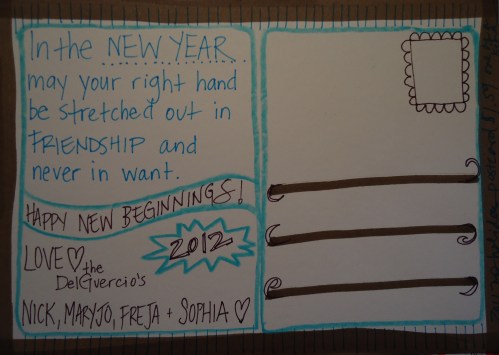 In the NEW YEAR
may your right hand
be stretched out in
FRIENDSHIP and
never in want.
HAPPY NEW BEGINNINGS!
2012
LOVE ♡ the
DelGuercio's
NICK, MARYJO, FREJA + SOPHIA ♡